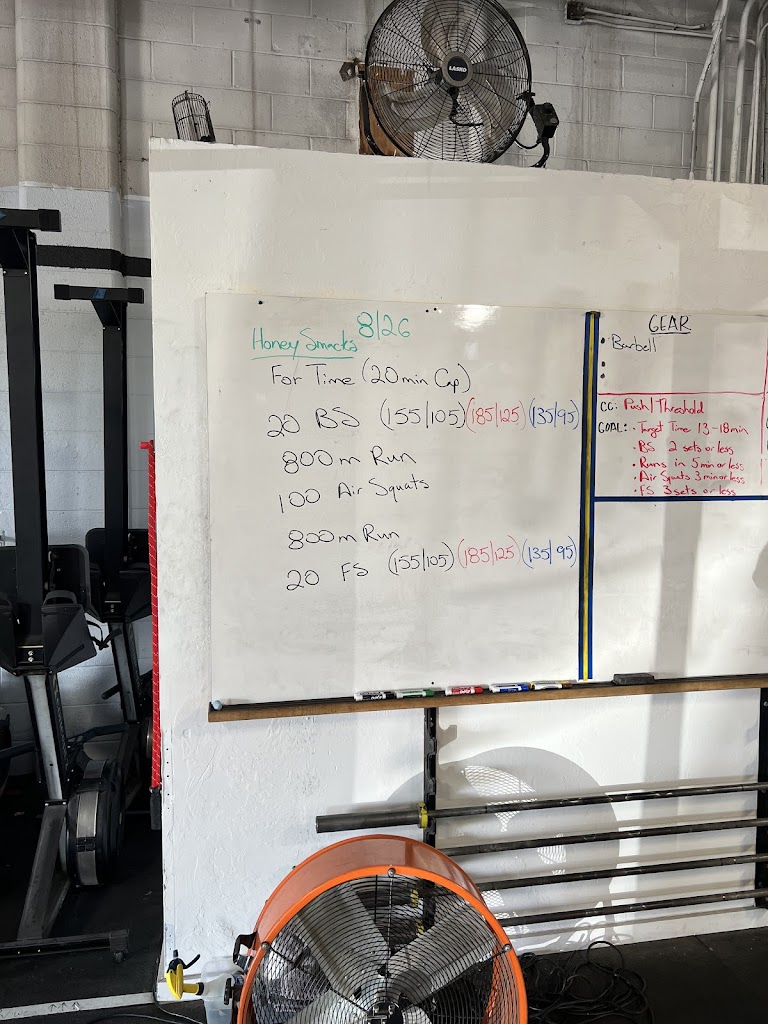 LASKO
8/26
Honey Smacks
For Time (20 min Cap)
20 BS (155/105) (185/125) (135/95)
800m Run
100 Air Squats
800m Run
20 FS (155/105) (185/125) (135/95)
GEAR
• Barbell
CC: Push/Threshold
GOAL: • Target Time 13-18min
• BS 2 sets or less
• Runs in 5 min or less
• Air Squats 3 min or less
• FS 3 sets or less